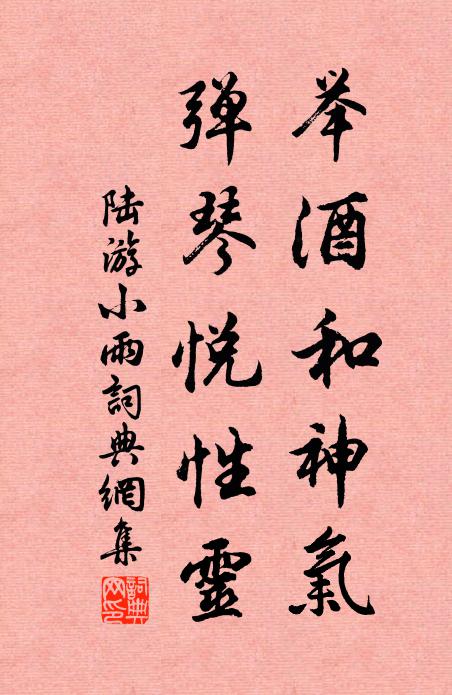 举酒和神氣
弹琴悦性靈
陆游小雨詞典網集
詞典網印